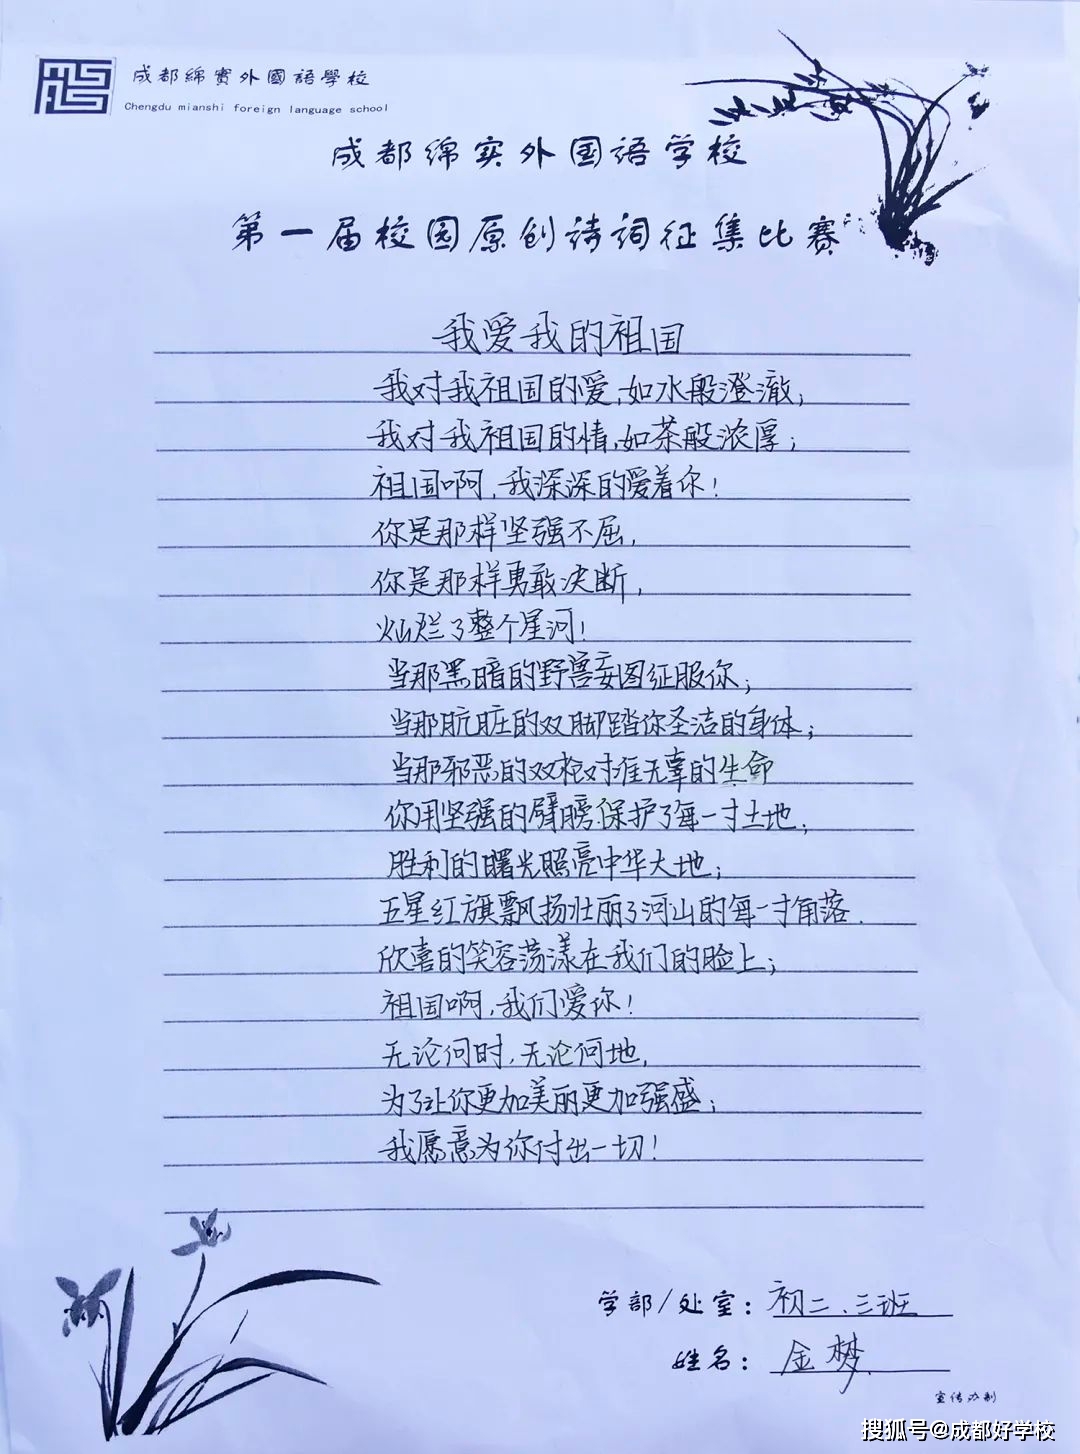 成都綿實外國語學校
Chengdu mianshi foreign language school
成都绵实外国语学校
第一届校园原创诗词征集比赛
我爱我的祖国
我对我祖国的爱,如水般澄澈;
我对我祖国的情,如茶般浓厚;
祖国啊,我深深的爱着你!
你是那样坚强不屈,
你是那样勇敢决断,
灿烂了整个星河!
当那黑暗的野兽妄图征服你;
当那肮脏的双脚踏你圣洁的身体;
当那邪恶的双枪对准无辜的生命
你用坚强的臂膀保护了每一寸土地;
胜利的曙光照亮中华大地;
五星红旗飘扬壮丽了河山的每一寸角落.
欣喜的笑容荡漾在我们的脸上;
祖国啊,我们爱你!
无论何时,无论何地,
为了让你更加美丽更加强盛;
我愿意为你付出一切!
学部/处室:初二、三班
姓名:金梦
宣传办制
搜狐号@成都好学校